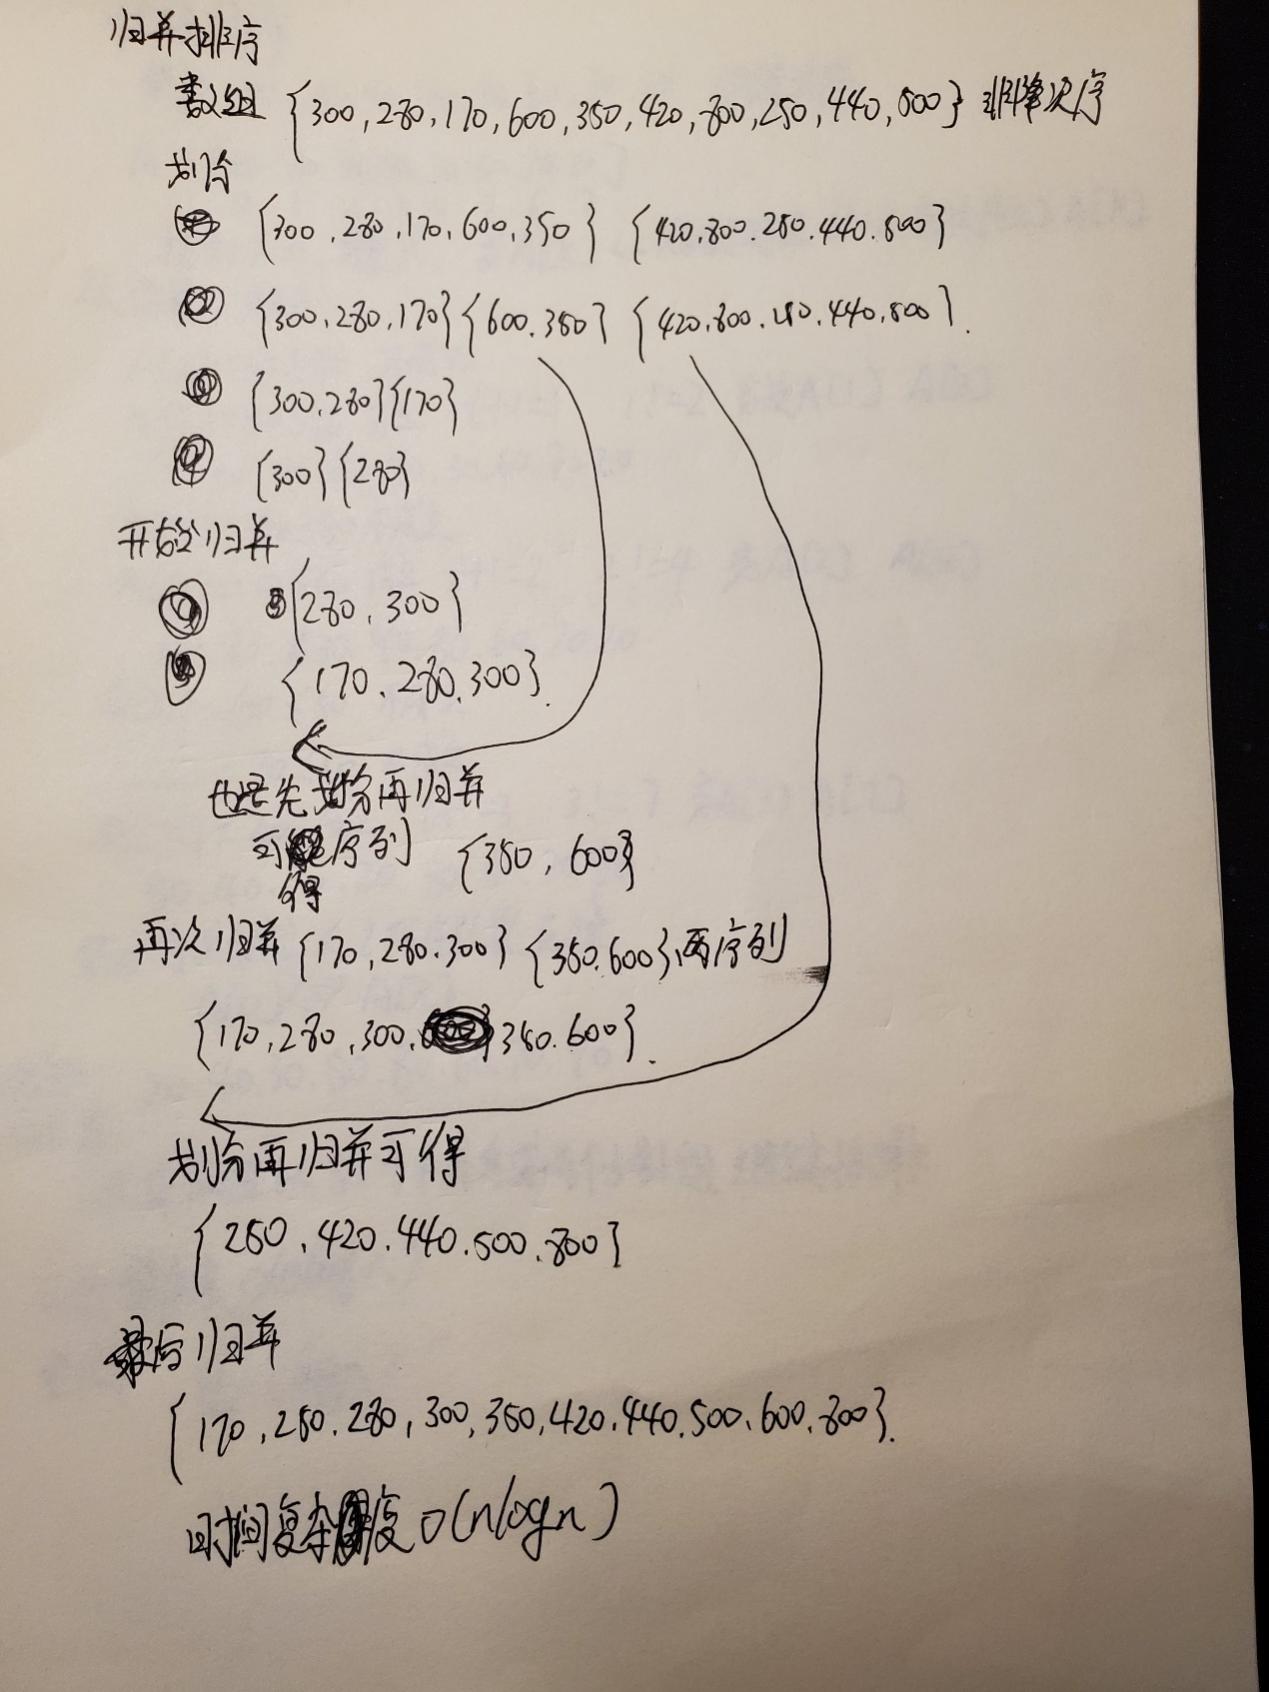 归并排序
数组 {300,280,170,600,350,420,800,250,440,500} 非降次序
划分
{300,280,170,600,350} {420,800.250.440.500}
{300,280,170}{600.350} {420,800.250.440,500}.
{300,280}{170}
{300}{280}
开始归并
{280,300}
{170,280,300}.
也是先划分再归并
可得序列 {350,600}
再次归并 {170,280.300} {350,600}两序列
{170,280,300,350.600}.
划分再归并可得
{250,420.440.500.800}
最后归并
{170,250.280,300,350,420.440.500.600.800}.
时间复杂度O(nlogn)